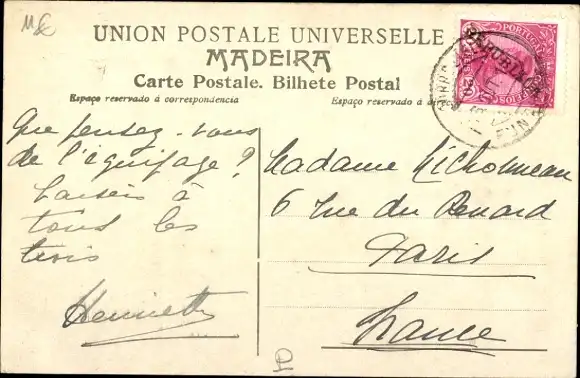 UNION POSTALE UNIVERSELLE
MADEIRA
Carte Postale. Bilhete Postal
Espaço reservado á correspondencia
Espaço reservado á
Que pensez-vous
de l'équipage ?
baisers à
tous les
trois
Henriette
Madame
6 rue du Renard
Paris
France
PORTUGAL
REPUBLICA